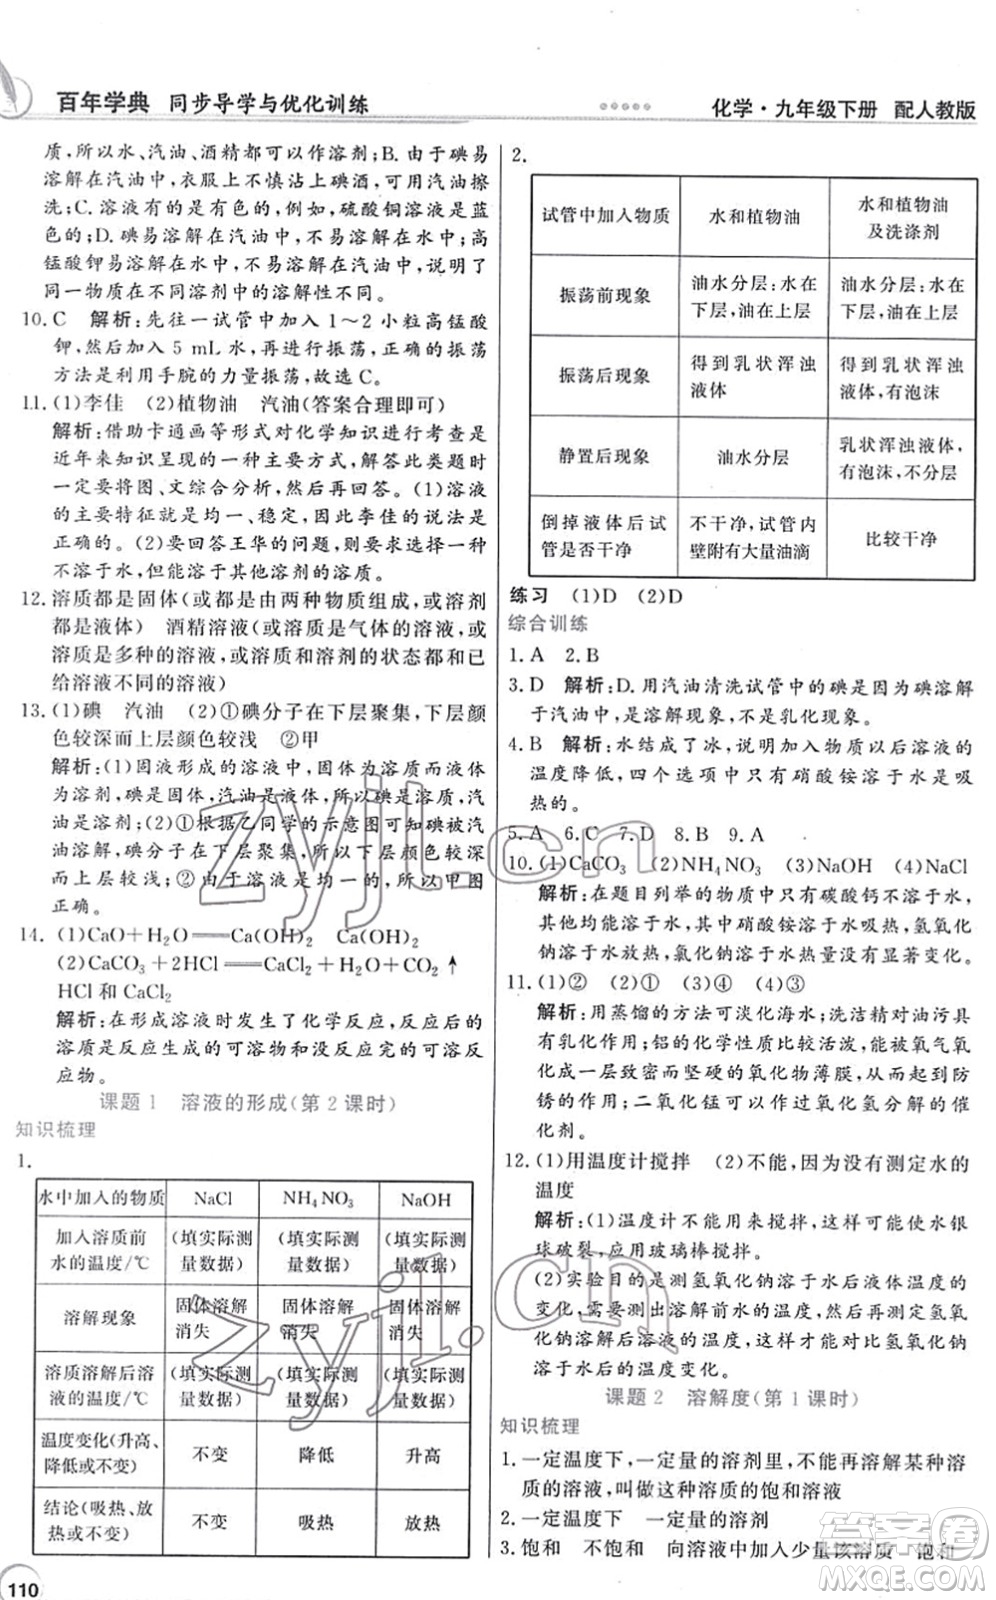 百年学典 同步导学与优化训练
化学·九年级下册 配人教版
质,所以水、汽油、酒精都可以作溶剂;B. 由于碘易
溶解在汽油中,衣服上不慎沾上碘酒,可用汽油擦
洗;C. 溶液有的是有色的,例如,硫酸铜溶液是蓝
色的;D. 碘易溶解在汽油中,不易溶解在水中;高
锰酸钾易溶解在水中,不易溶解在汽油中,说明了
同一物质在不同溶剂中的溶解性不同。
10. C 解析:先往一试管中加入 1～2 小粒高锰酸
钾,然后加入 5 mL 水,再进行振荡,正确的振荡
方法是利用手腕的力量振荡,故选 C。
11. (1)李佳 (2)植物油 汽油(答案合理即可)
解析:借助卡通画等形式对化学知识进行考查是
近年来知识呈现的一种主要方式,解答此类题时
一定要将图、文综合分析,然后再回答。(1)溶液
的主要特征就是均一、稳定,因此李佳的说法是
正确的。(2)要回答王华的问题,则只要选择一种
不溶于水,但能溶于其他溶剂的溶质。
12. 溶质都是固体(或都是由两种物质组成,或溶剂
都是液体) 酒精溶液(或溶质是气体的溶液,或
溶质是多种的溶液,或溶质和溶剂的状态都和已
给溶液不同的溶液)
13. (1)碘 汽油 (2)①碘分子在下层聚集,下层颜
色较深而上层颜色较浅 ②甲
解析:(1)固液形成的溶液中,固体为溶质而液体
为溶剂,碘是固体,汽油是液体,所以碘是溶质,汽
油是溶剂;(2)①根据乙同学的示意图可知碘被汽
油溶解,并在下层聚集,所以下层颜色较深而上
层较浅;②由于溶液是均一、稳定的,所以甲图
正确。
14. (1)CaO+H₂O══Ca(OH)₂ Ca(OH)₂
(2)CaCO₃+2HCl══CaCl₂+H₂O+CO₂↑
HCl 和 CaCl₂
解析:在形成溶液时发生了化学反应,反应后的
溶质是反应生成的可溶物和没反应完的可溶反
应物。
课题 1 溶液的形成(第 2 课时)
知识梳理
1.
水中加入的物质 NaCl NH₄NO₃ NaOH
加入溶质前水的温度/℃ (填实际测量数据) (填实际测量数据) (填实际测量数据)
溶解现象 固体溶解消失 固体溶解消失 固体溶解消失
溶质溶解后溶液的温度/℃ (填实际测量数据) (填实际测量数据) (填实际测量数据)
温度变化(升高、降低或不变) 不变 降低 升高
结论(吸热、放热或不变) 不变 吸热 放热
110
2.
试管中加入物质 水和植物油 水和植物油及洗涤剂
振荡前现象 油水分层:水在下层,油在上层 油水分层:水在下层,油在上层
振荡后现象 得到乳状浑浊液体 得到乳状浑浊液体,有泡沫
静置后现象 油水分层 乳状浑浊液体,有泡沫,不分层
倒掉液体后试管是否干净 不干净,试管内壁附有大量油滴 比较干净
练习 (1)D (2)D
综合训练
1. A 2. B
3. D 解析:D. 用汽油清洗试管中的碘是因为碘溶解
于汽油中,是溶解现象,不是乳化现象。
4. B 解析:水结成了冰,说明加入物质以后溶液的
温度降低,四个选项中只有硝酸铵溶于水是吸
热的。
5. A 6. C 7. D 8. B 9. A
10. (1)CaCO₃ (2)NH₄NO₃ (3)NaOH (4)NaCl
解析:在题目列举的物质中只有碳酸钙不溶于水,
其他均能溶于水,其中硝酸铵溶于水吸热,氢氧化
钠溶于水放热,氯化钠溶于水热量没有显著变化。
11. (1)② (2)① (3)④ (4)③
解析:用蒸馏的方法可淡化海水;洗洁精对油污具
有乳化作用;铝的化学性质比较活泼,能被氧气氧
化成一层致密而坚硬的氧化物薄膜,从而达到防
锈的作用;二氧化锰可以作过氧化氢分解的催
化剂。
12. (1)用温度计搅拌 (2)不能,因为没有测定水的
温度
解析:(1)温度计不能用来搅拌,这样可能使水银
球破裂,应用玻璃棒搅拌。
(2)实验目的是测氢氧化钠溶于水后液体温度的
变化,需要测出溶解前水的温度,然后再测定氢氧
化钠溶解后溶液的温度,这样才能比较氢氧化钠
溶于水后的温度变化。
课题 2 溶解度(第 1 课时)
知识梳理
1. 一定温度下,一定量的溶剂里,不能再溶解某种溶
质的溶液,叫做这种溶质的饱和溶液
2. 一定温度下 一定量的溶剂
3. 饱和 不饱和 向溶液中加入少量该溶质 饱和
zyjl.cn
zyjl.cn
答案圈
MXQE.COM